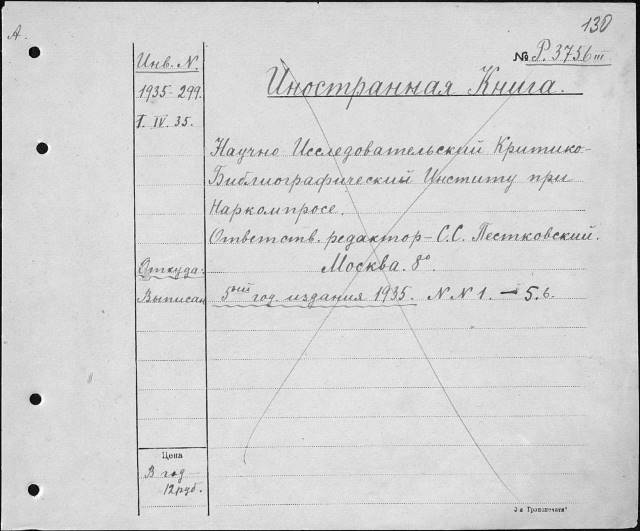 А.
130
№ Р. 3756 III
Инв. N.
1935-299.
1. IV. 35.
Иностранная Книга.
Научно Исследовательский Критико-
Библиографический Институту при
Наркомпросе.
Ответств. редактор - С.С. Пестковский.
Москва. 8º
Откуда:
Выписан
5ый год издания 1935. N N 1. - 5. 6.
Цена
В год
12 руб.